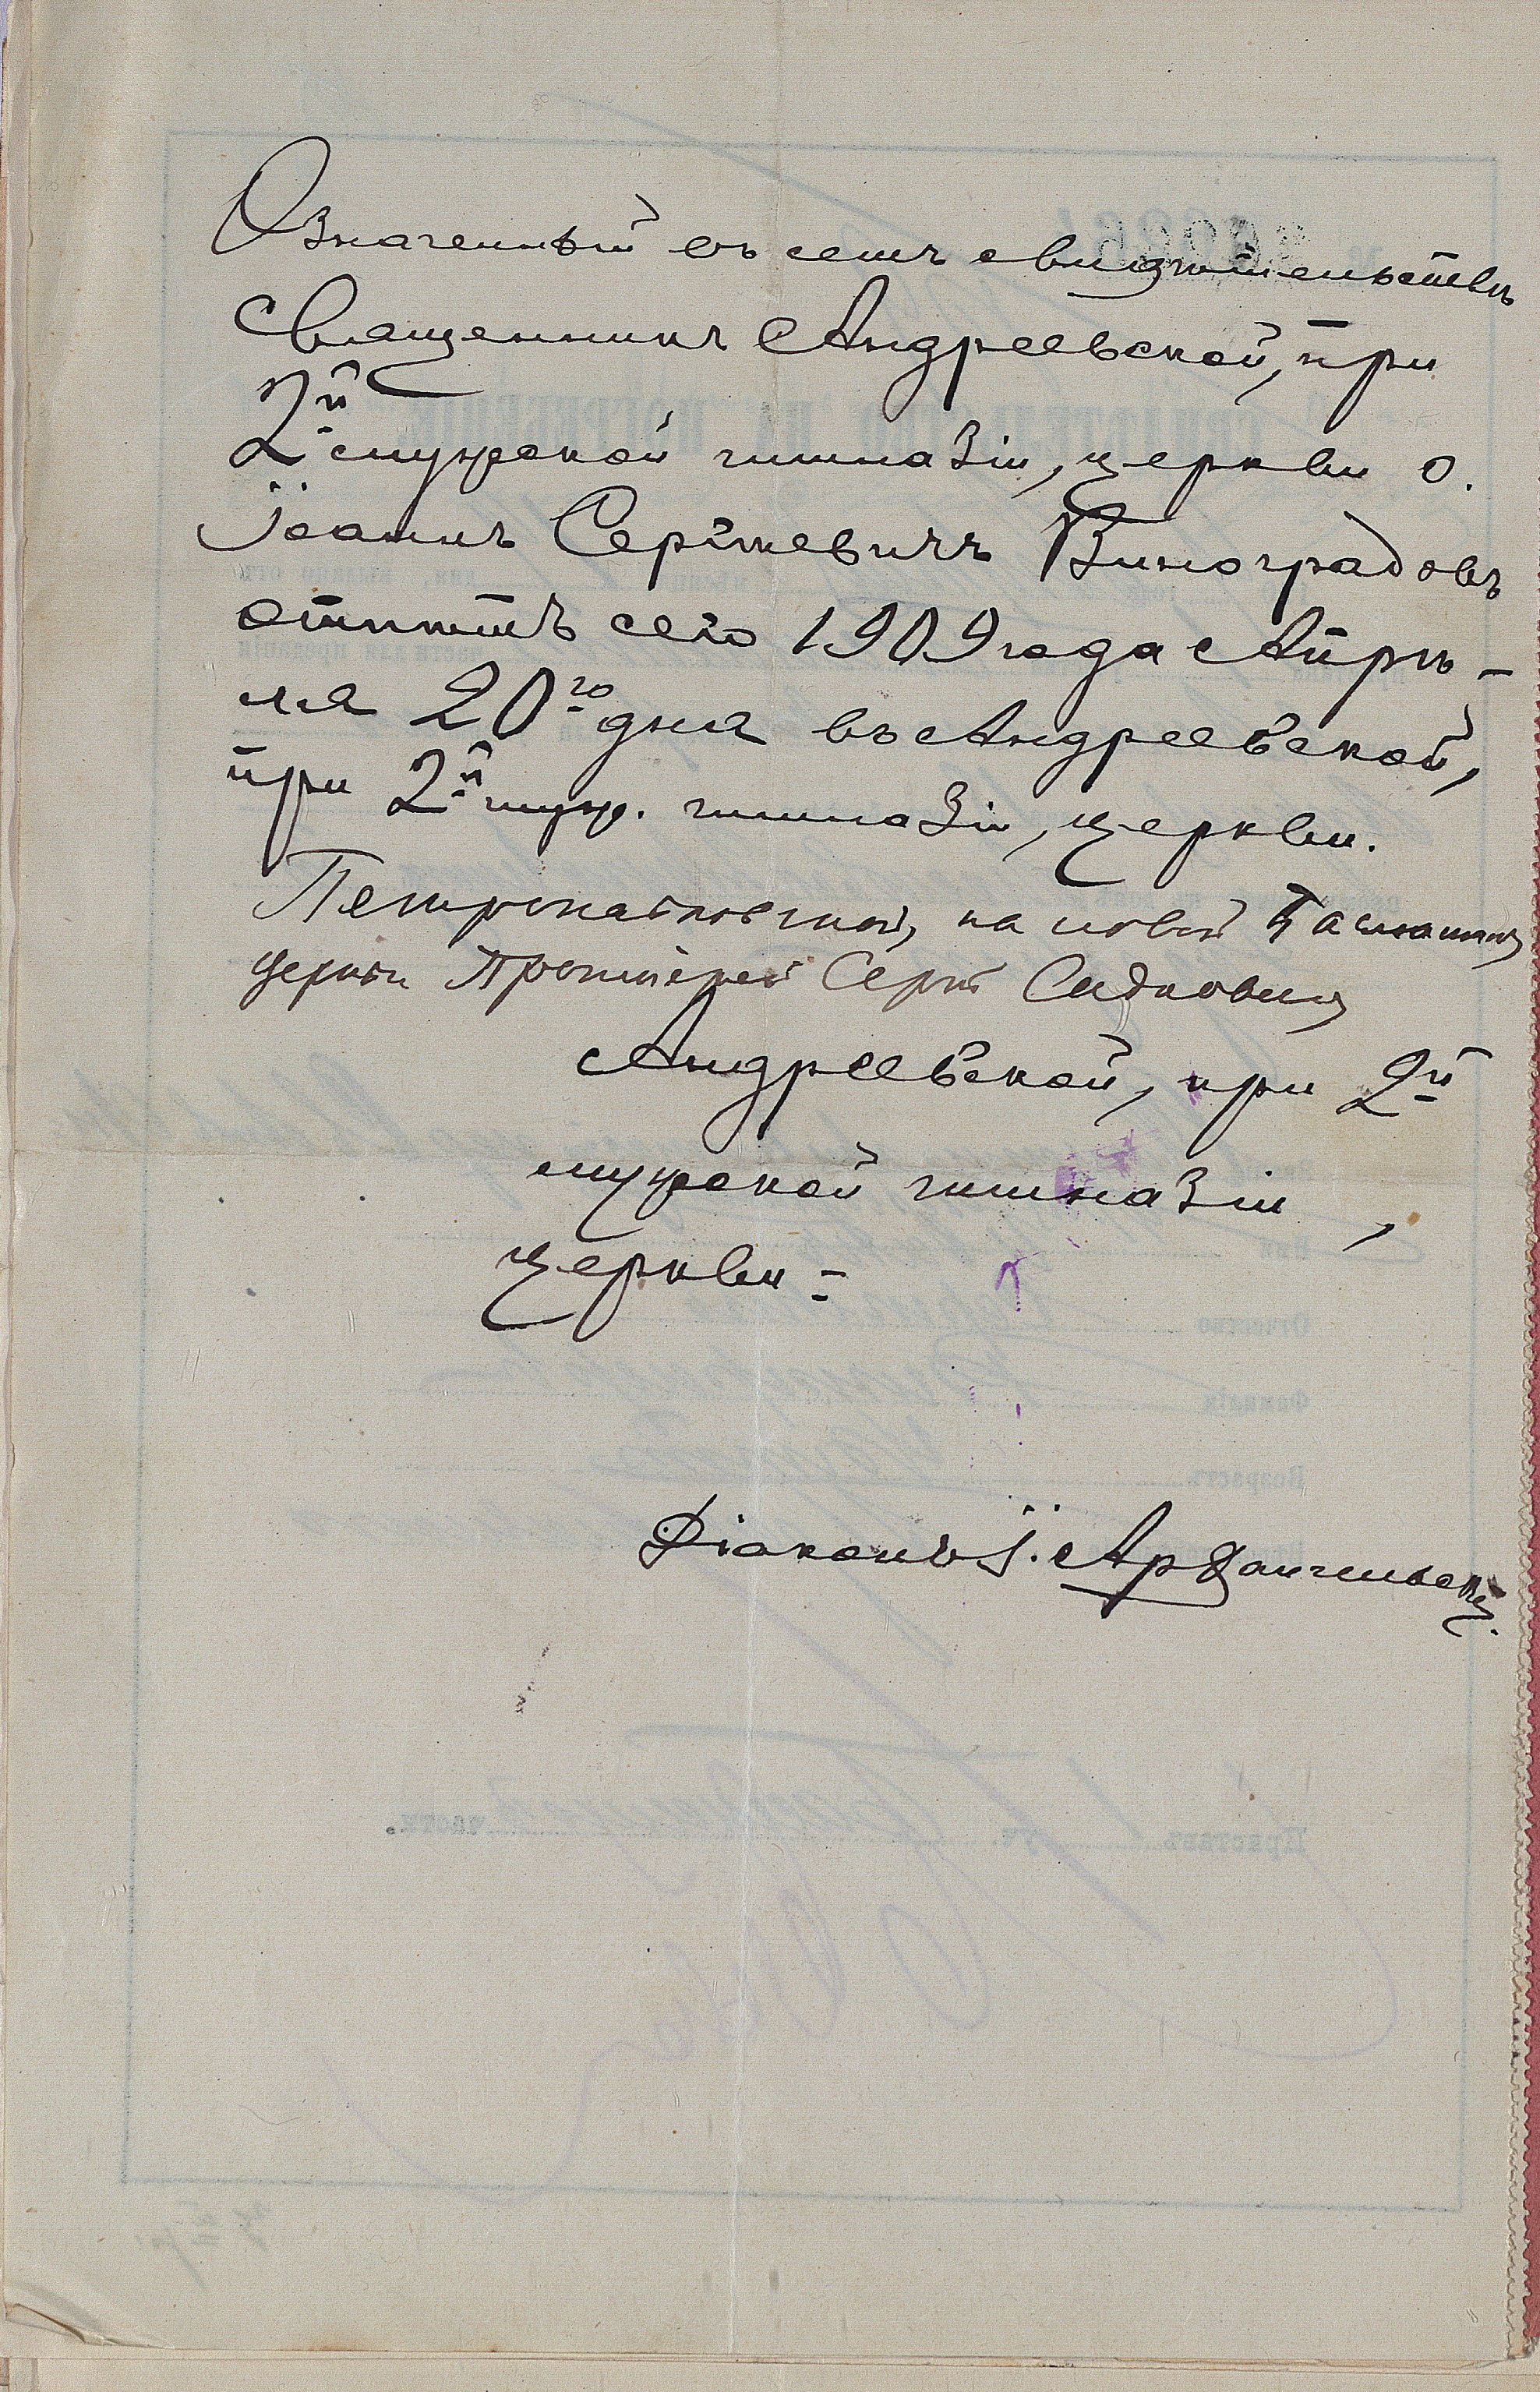 Означенный въ семъ свидѣтельствѣ
Священникъ Андреевской, при
2й мужской гимназіи, церкви о.
Іоаннъ Сергѣевичъ Виноградовъ
отпѣтъ сего 1909 года Апрѣ-
ля 20го дня въ Андреевской,
при 2й муж. гимназіи, церкви.
Петропавловской, на новой Басманной
церкви Протоіерей Сергѣй Садковскій
Андреевской, при 2й
мужской гимназіи,
церкви -
Діаконъ І. Архангельскій.